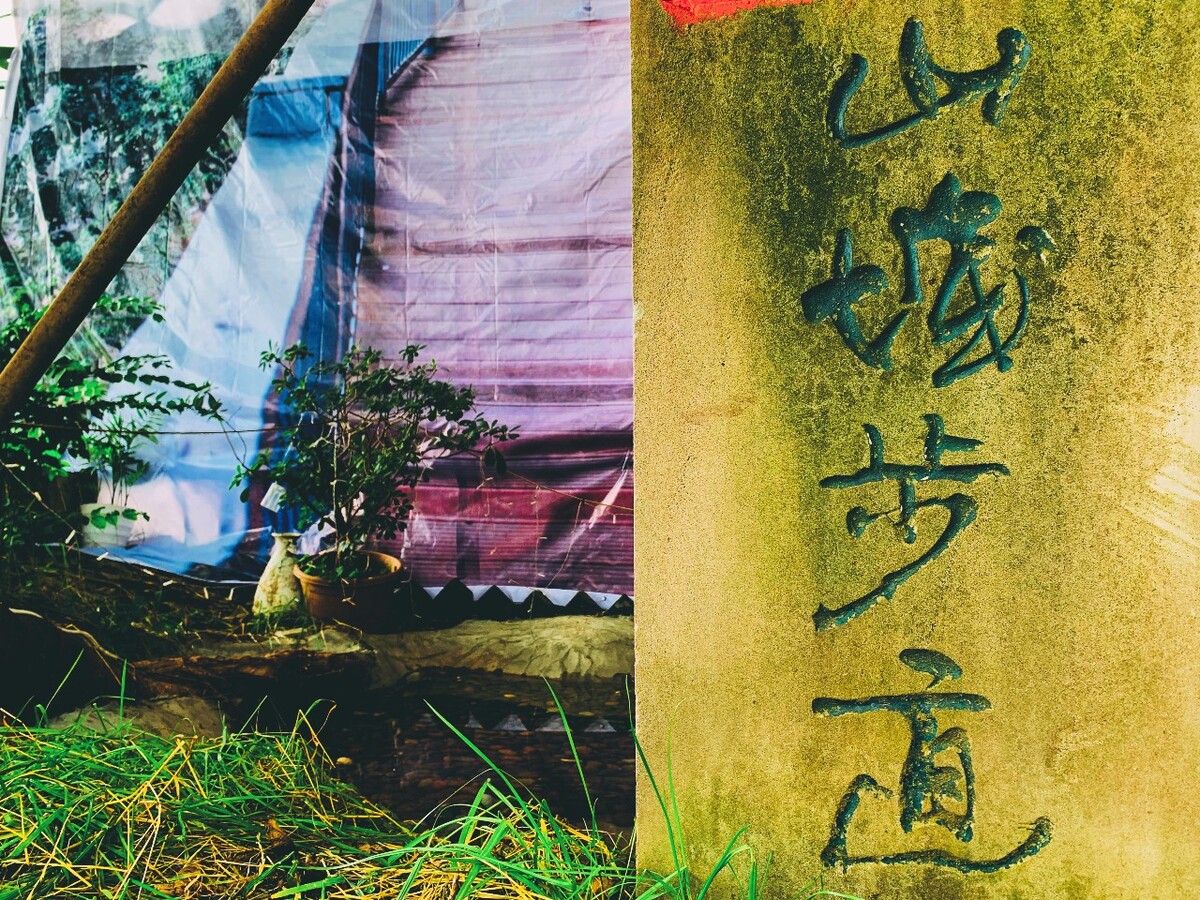 山城步道